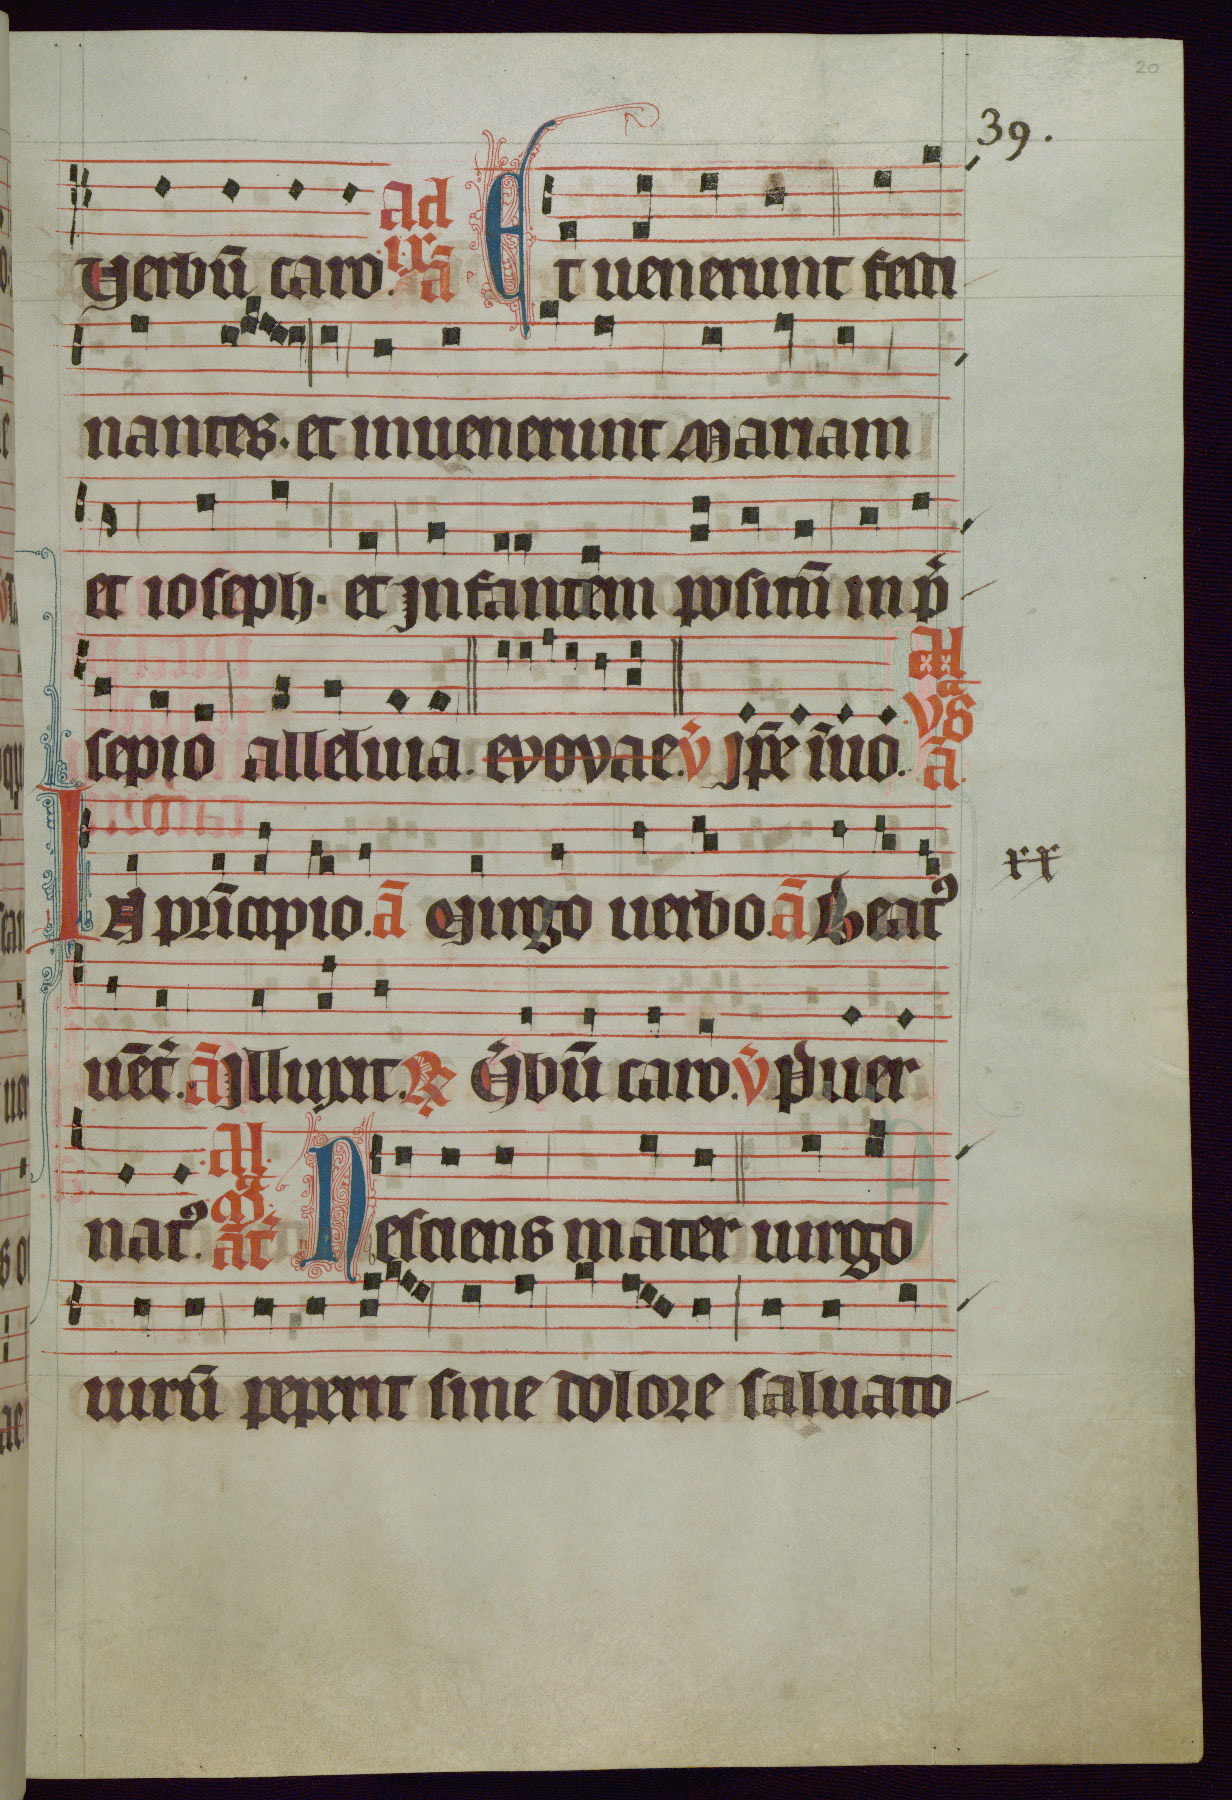 20
39.
Verbū caro. ad ix ā Et uenerunt festi
nantes. et inuenerunt Mariam
et ioseph. et jnfantem positū in p̄
sepio alleluia. evovae. v̄ jpſe īuo. Al a vs ā.
IN prīcipio. ā Virgo uerbo. ā Beatꝰ
xx
uēt̄. ā Illuxit. R V̄bū caro. v̄ Puer
natꝰ. Al a M āt Nesciens mater uirgo
uirū peperit sine dolore saluato